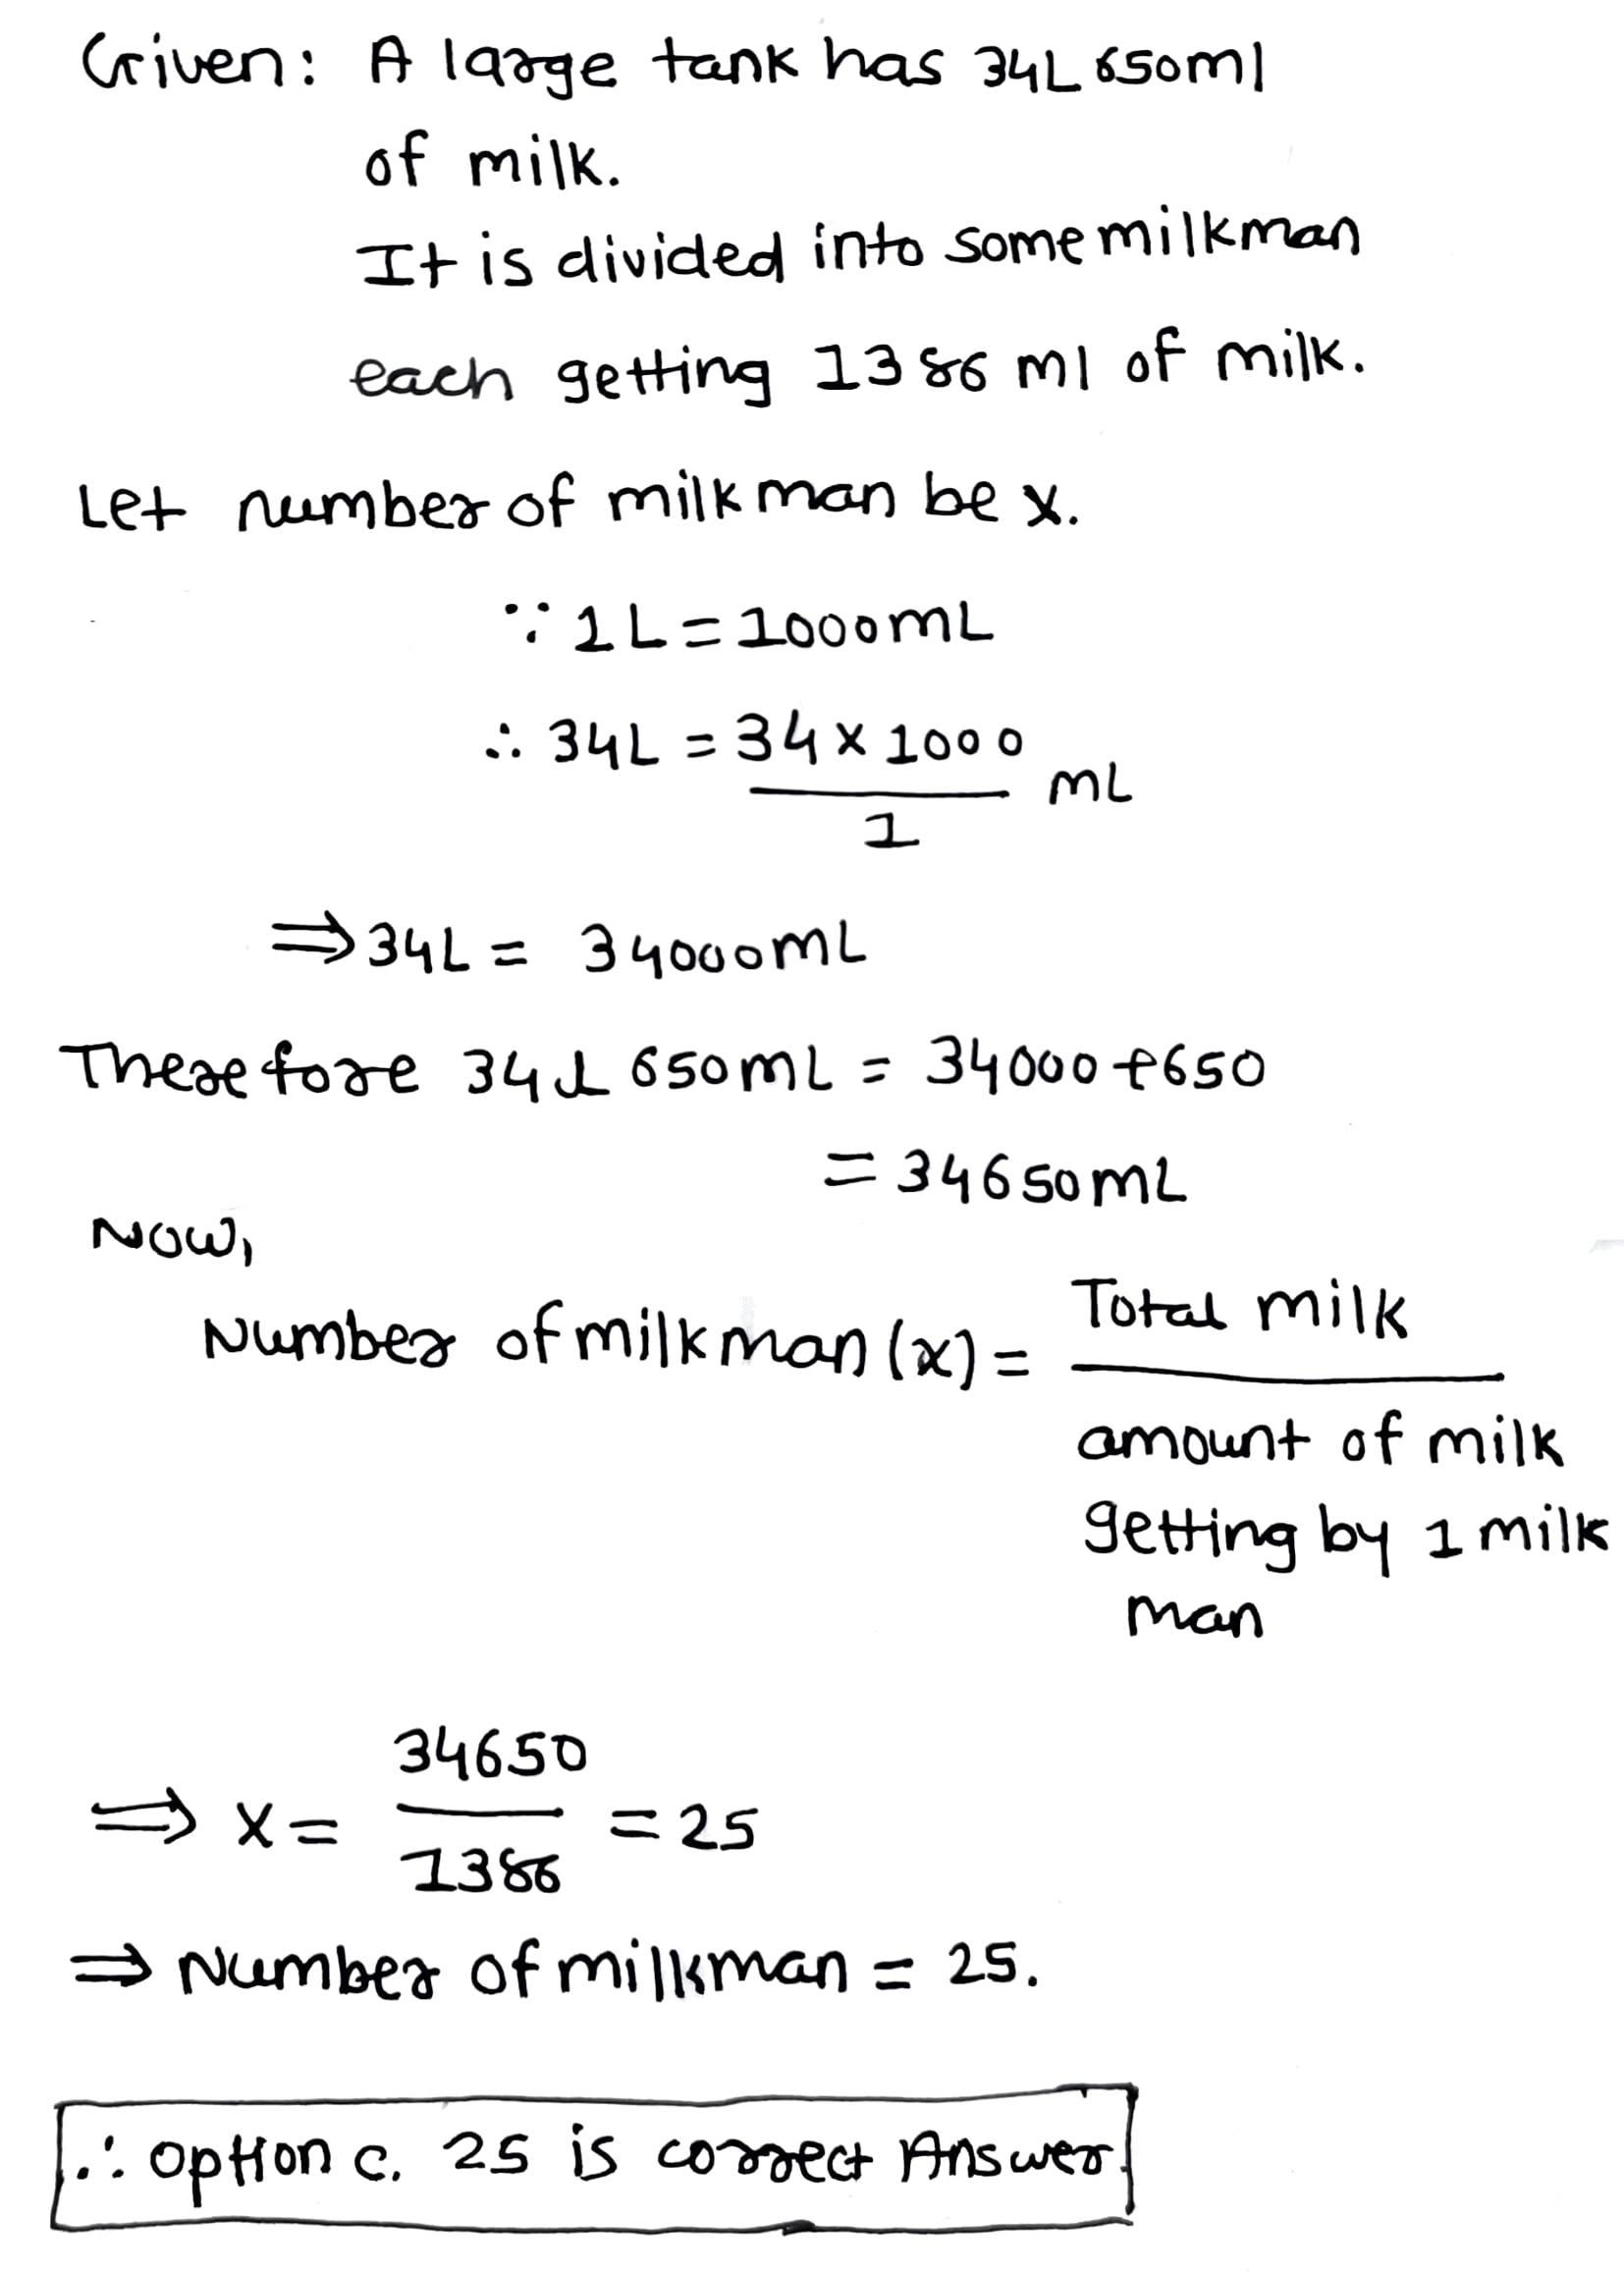 Given: A large tank has 34L 650ml
of milk.
It is divided into some milkman
each getting 1386 ml of milk.
Let number of milkman be x.
∵ 1L = 1000mL
∴ 34L = 34 x 1000 / 1 mL
⇒ 34L = 34000mL
Therefore 34L 650mL = 34000+650
= 34650mL
Now,
Number of milkman (x) = Total milk
amount of milk
getting by 1 milk
man
⇒ x = 34650 / 1386 = 25
⇒ Number of milkman = 25.
∴ option c. 25 is correct Answer.